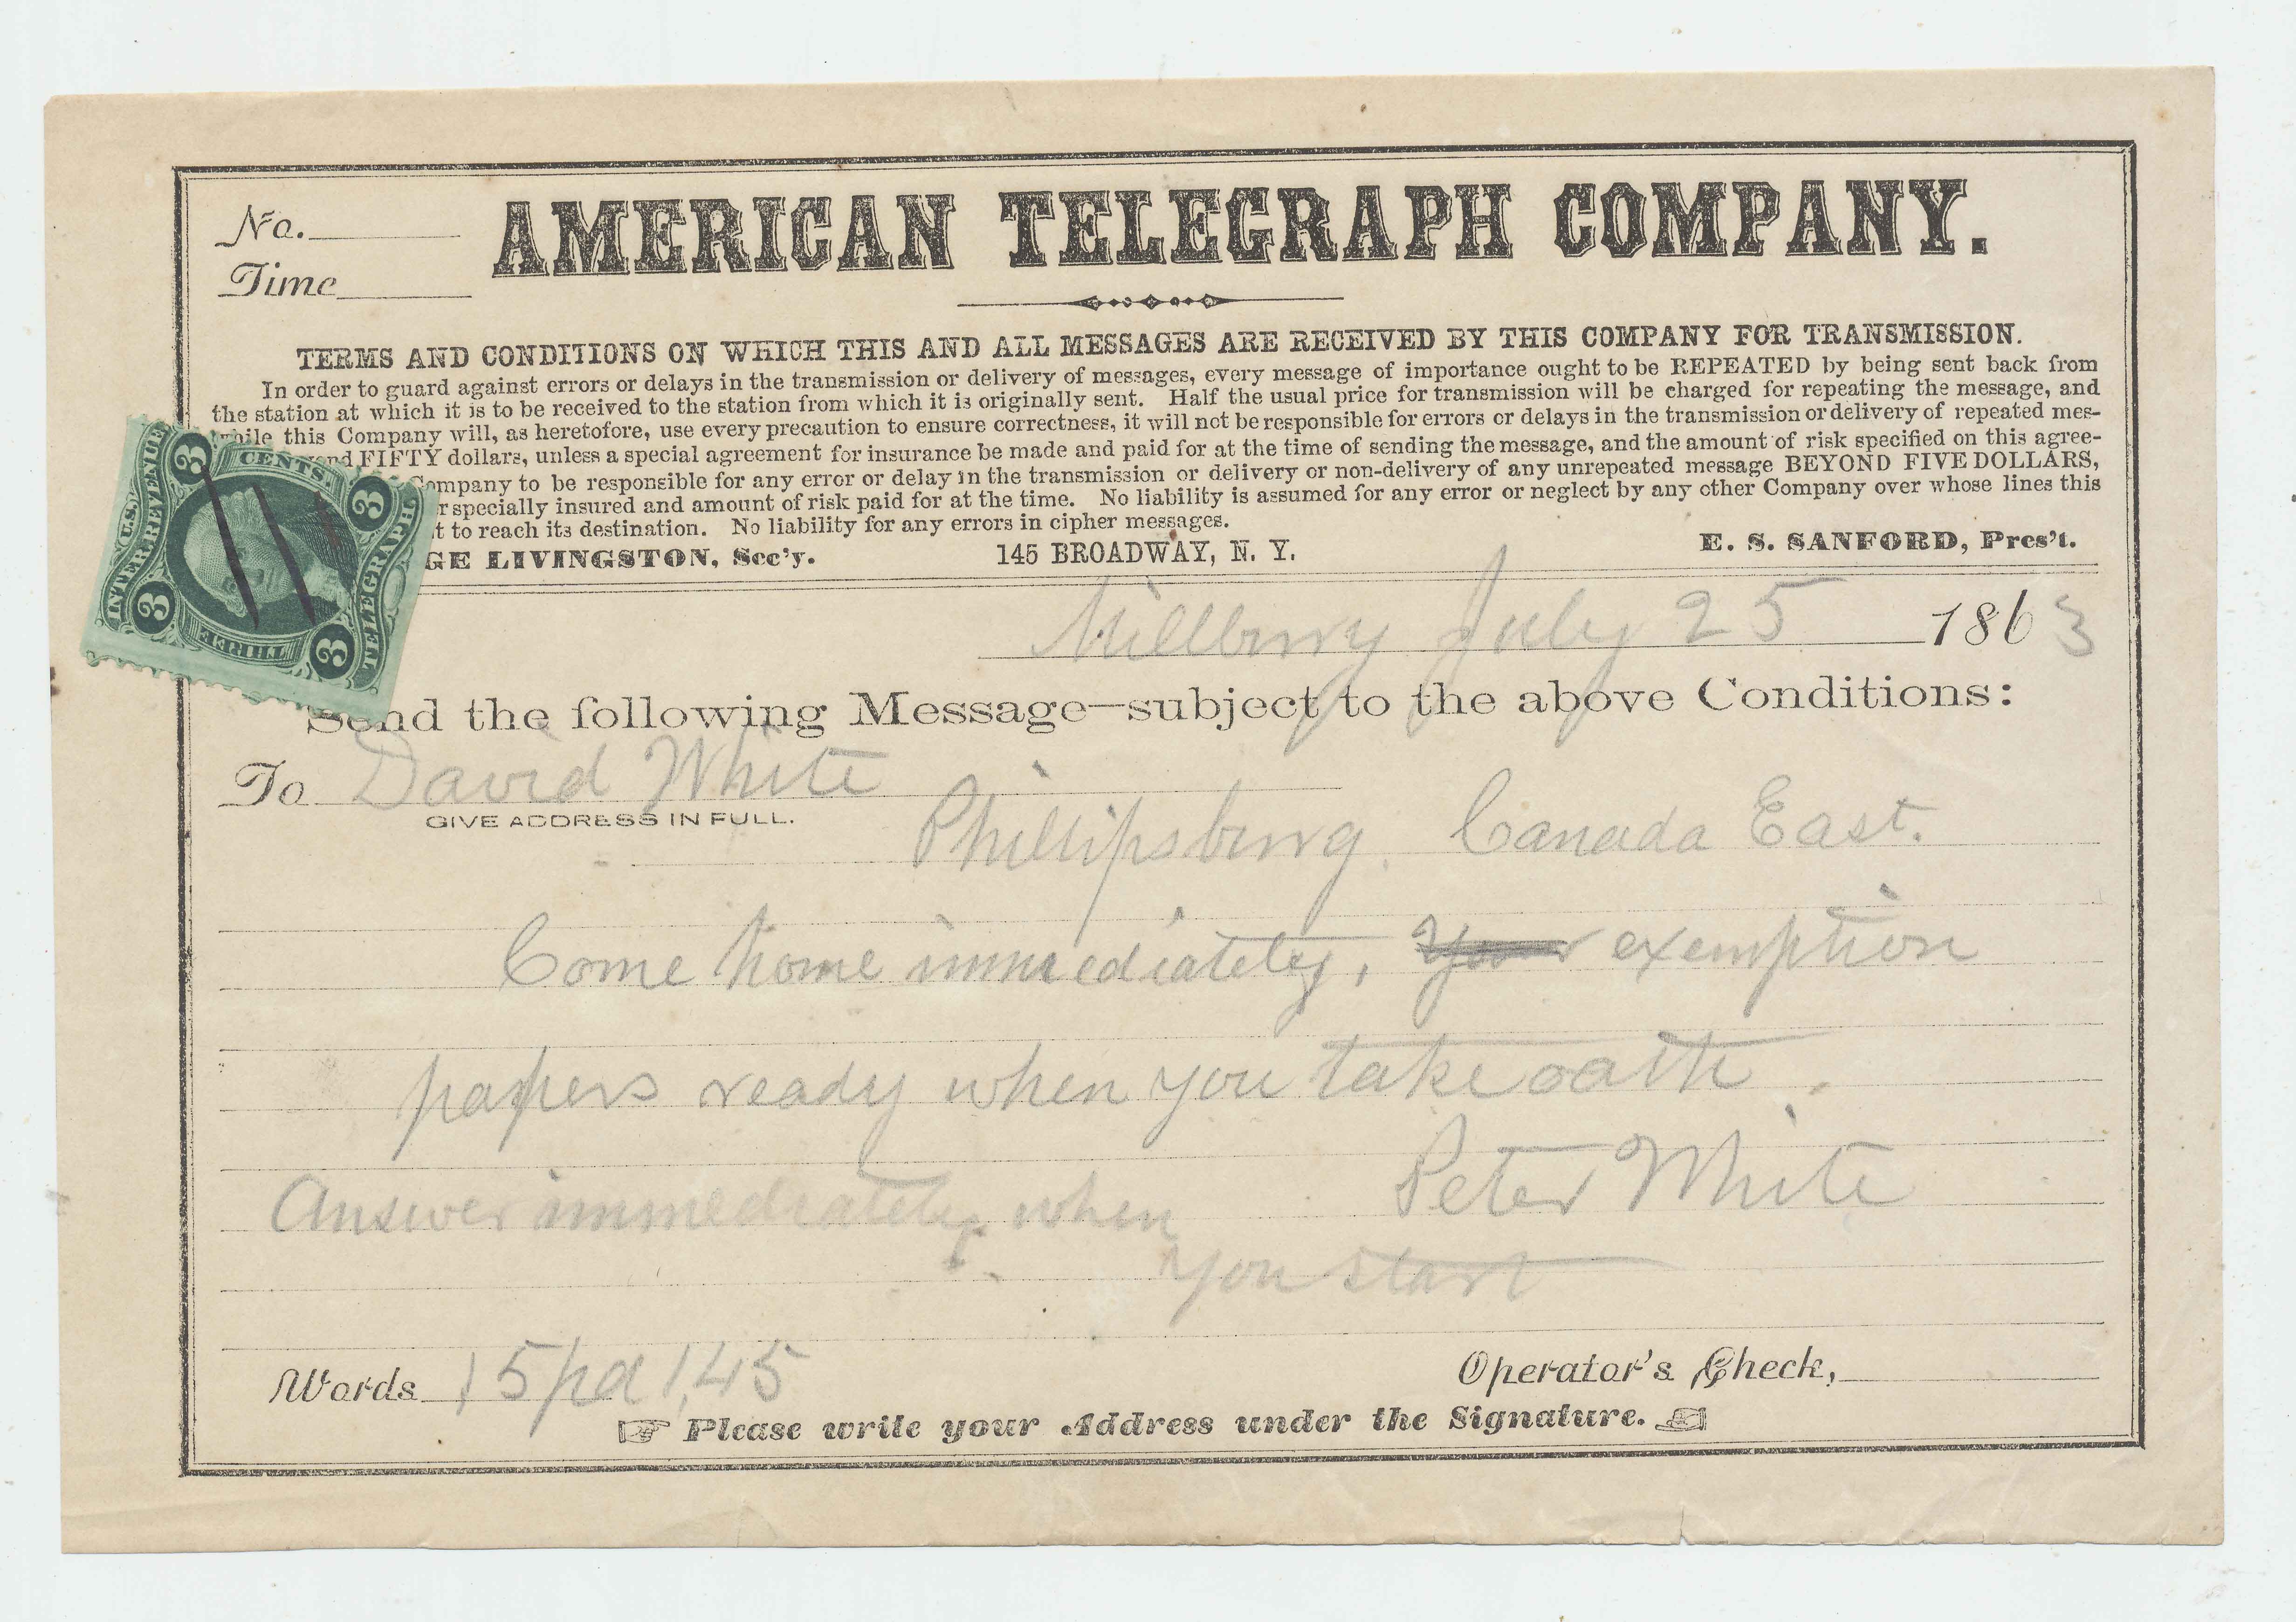 No.
AMERICAN TELEGRAPH COMPANY.
Time
TERMS AND CONDITIONS ON WHICH THIS AND ALL MESSAGES ARE RECEIVED BY THIS COMPANY FOR TRANSMISSION.
In order to guard against errors or delays in the transmission or delivery of messages, every message of importance ought to be REPEATED by being sent back from
the station at which it is to be received to the station from which it is originally sent. Half the usual price for transmission will be charged for repeating the message, and
while this Company will, as heretofore, use every precaution to ensure correctness, it will not be responsible for errors or delays in the transmission or delivery of repeated mes-
FIFTY dollars, unless a special agreement for insurance be made and paid for at the time of sending the message, and the amount of risk specified on this agree-
Company to be responsible for any error or delay in the transmission or delivery or non-delivery of any unrepeated message BEYOND FIVE DOLLARS,
r specially insured and amount of risk paid for at the time. No liability is assumed for any error or neglect by any other Company over whose lines this
t to reach its destination. No liability for any errors in cipher messages.
GE LIVINGSTON, Sec'y. 145 BROADWAY, N. Y. E. S. SANFORD, Pres't.
U.S. INTER. REVENUE
3 CENTS. 3
TELEGRAPH
3 3
Millbury July 25 1863
Send the following Message—subject to the above Conditions:
To David White
GIVE ADDRESS IN FULL.
Phillipsburg. Canada East.
Come home immediately, Your exemption
papers ready when you take oath.
Peter White
Answer immediately when
you start
Words 15 pd 1,45
Operator's Check,
Please write your Address under the Signature.